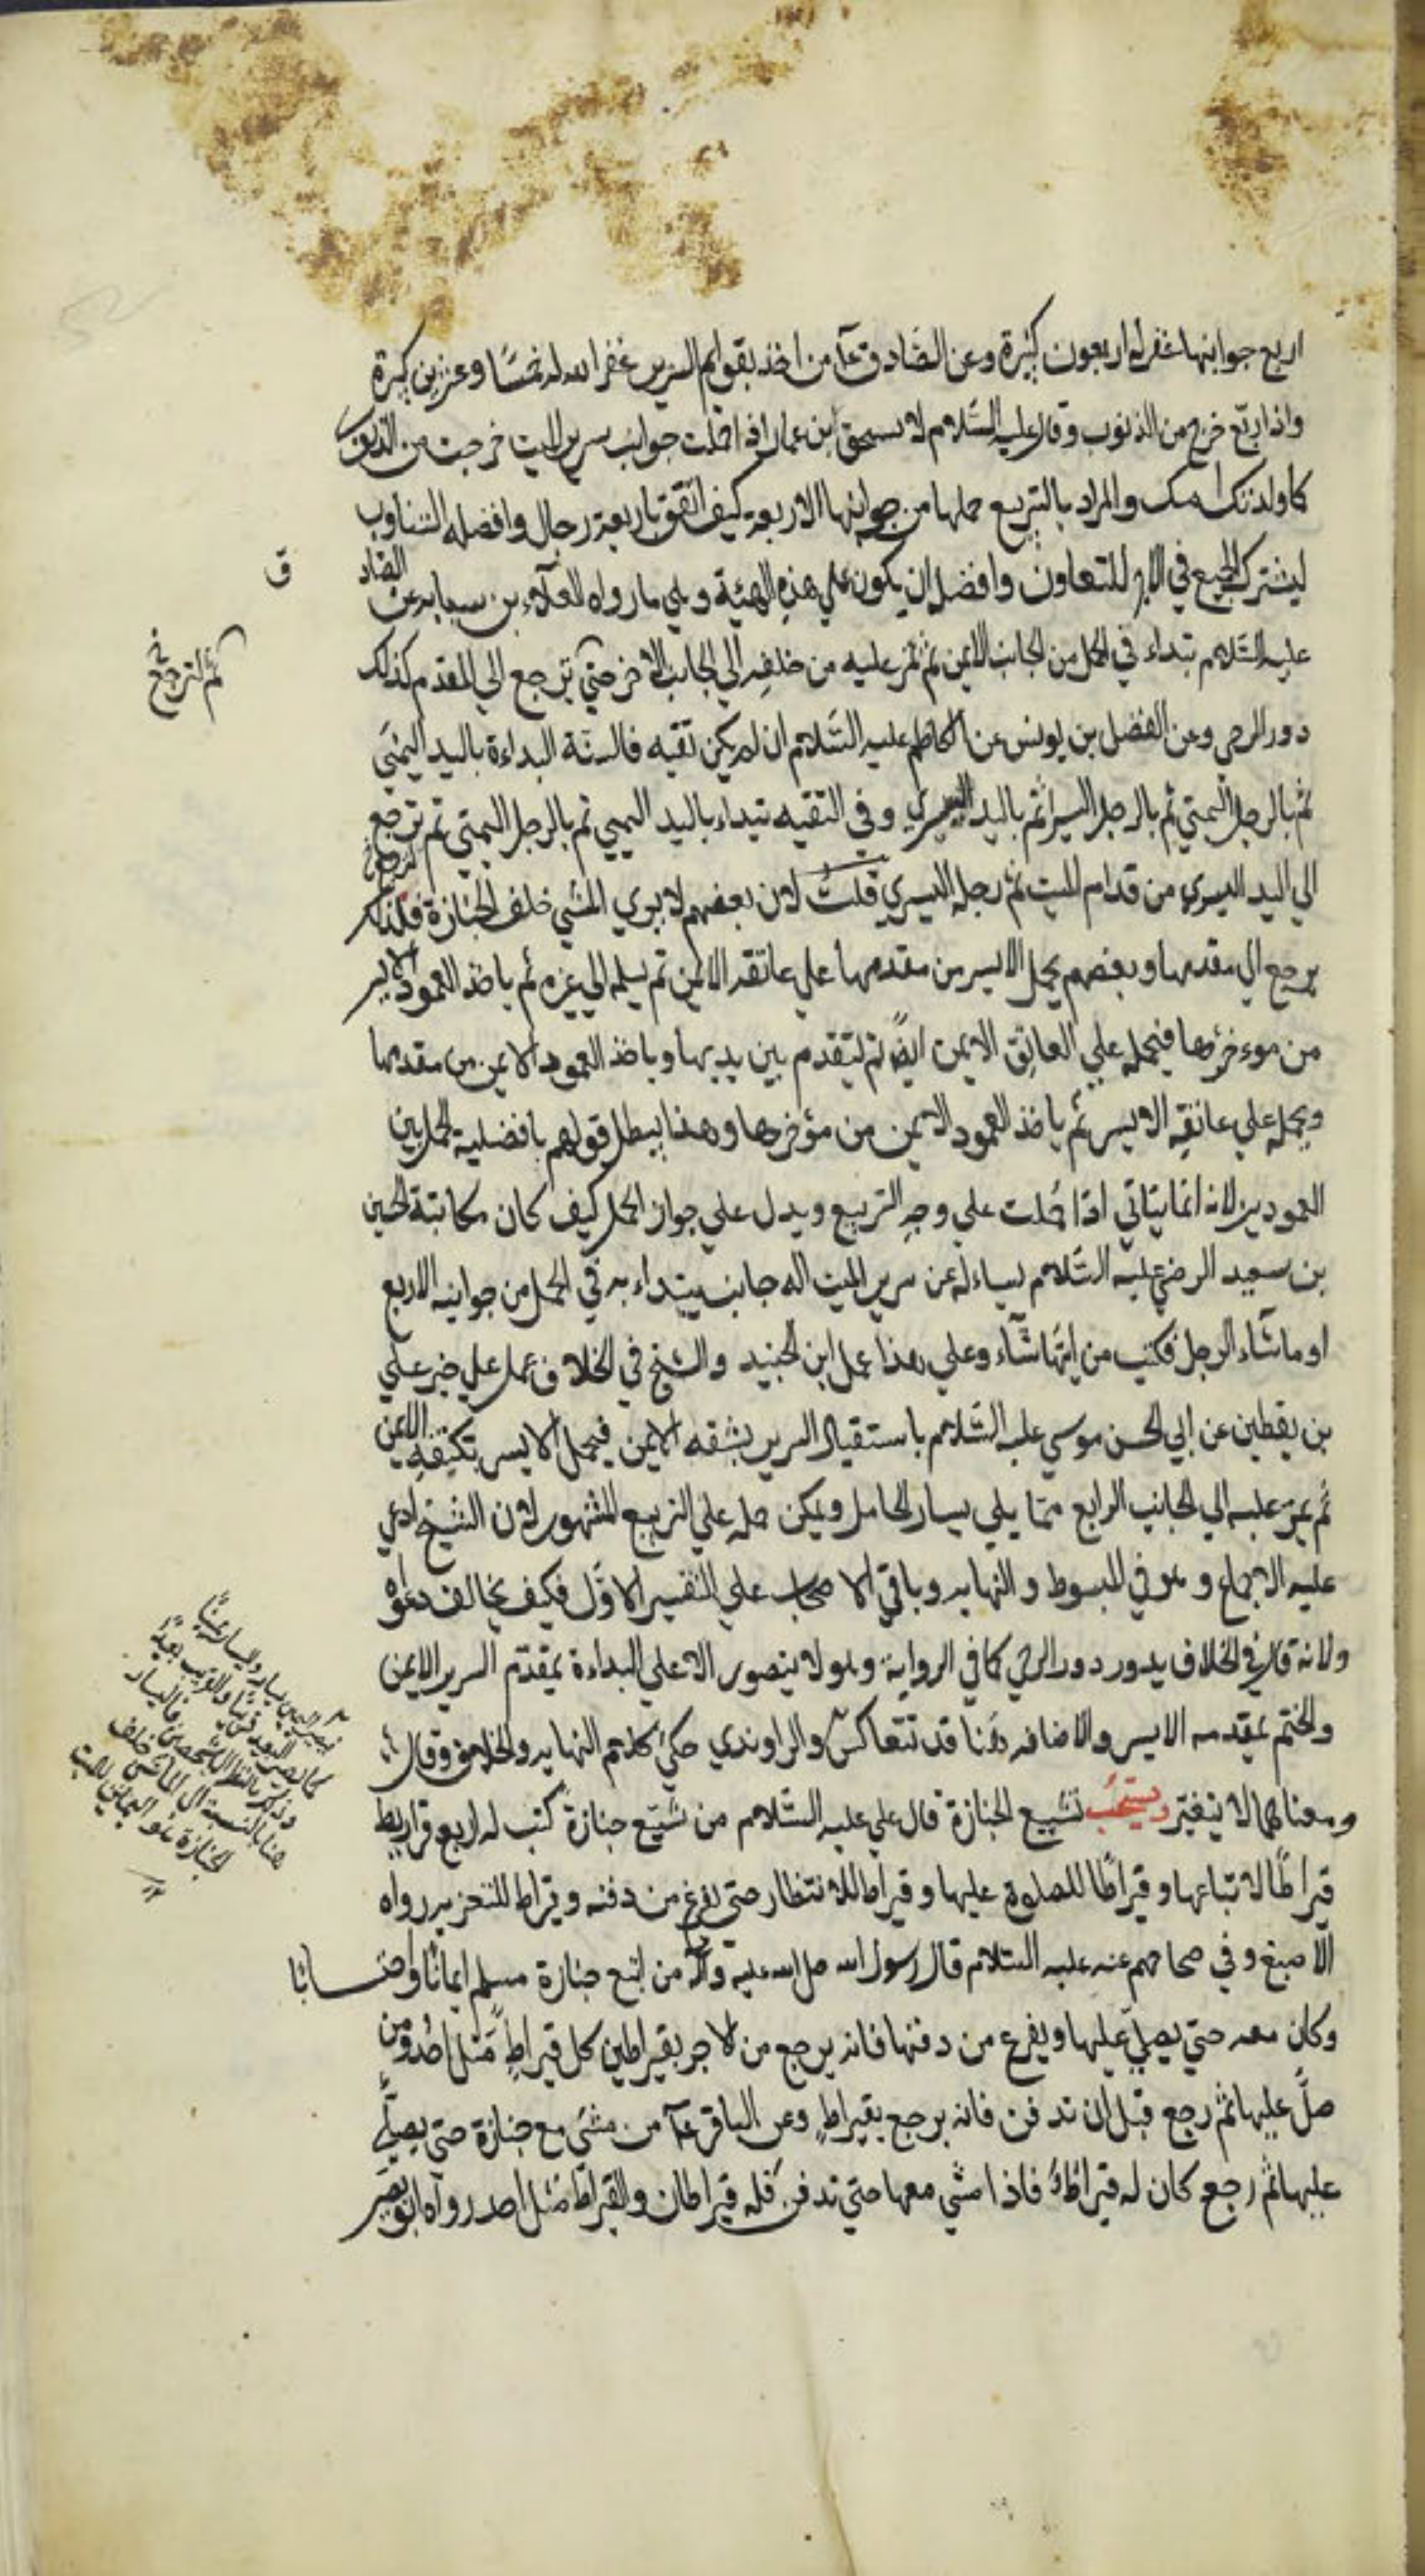 اربع جوانبها غفر له اربعون كبيرة وعن الصّادق عآ من اخذ بقوايم السرير غفر الله له خمسًا وعزين كبيرة
واذا ربّع خرج من الذنوب وقال عليه السّلام لاسحق ابن عمار اذا حملت جوانب سرير الميت خرجت من الذنوب
كما ولدتك امك والمراد بالتربيع حملها من جوانبها الاربعة كيف اتفق باربعة رجال وافضله التناوب
ليشترك الجميع في الاجر للتعاون وافضل ان يكون علي هذه الهيئة وهي ما رواه العلاء بن سيابه عن الصّاد
ق
عليه السّلام تبتداء في الحمل من الجانب الايمن ثم تمر عليه من خلفه الي الجانب الاخر حتي ترجع الي المقدم كذلك
ثم لترجع خ
دور الرحي وعن الفضل بن يونس عن الكاظم عليه السّلام ان لم يكن تقيه فالسنة البداءة باليد اليمني
ثم بالرجل اليمني ثم بالرجل اليسرا ثم باليد اليسري وفي التقيه تبتداء باليد اليمني ثم بالرجل اليمني ثم ترجع
الي اليد اليسري من قدام الميت ثم رجله اليسري قلتُ لان بعضهم لا يري المشي خلف الجنازة فلذلك
يرجع الي مقدمها وبعضهم يحمل الايسر من مقدمها علي عاتقه الايمن ثم يسلمه الي غيره ثم ياخذ العمود الايسر
من موءخرها فيحمله علي العاتق الايمن ايضًا ثم ليتقدم بين يديها وياخذ العمود الايمن من مقدمها
ويحمله علي عاتقه الايسر ثم ياخذ العمود الايمن من مؤخرها وهذا يبطل قولهم بافضلية الحمل بين
العمودين لانه انما يتاتي اذا حُملت علي وجه التربيع ويدل علي جواز الحمل كيف كان مكاتبة الحسين
بن سعيد الرضي عليه السّلام يساءله عن سرير الميت اله جانب يبتداء به في الحمل من جوانبه الاربع
او ما شاء الرجل فكتب من ايّها شاء وعلي هذا عمل ابن الجنيد والشيخ في الخلاف عمل علي خبر علي
بن يقطين عن ابي الحسن موسي عليه السّلام باستقبال السرير بشقه الايمن فيحمل الايسر بكتفه الايمن
ثم يمرّ عليه الي الجانب الرابع ممّا يلي يسار الحامل ويمكن حمله علي التربيع المشهور لان الشيخ ادعي
عليه الاجماع وهو في المبسوط والنهايه وباقي الاصحاب علي التفسير الاوّل فكيف يخالف دعواه
ولانه قال في الخلاف يدور دور الرحي كما في الرواية وهو لا يتصور الا علي البداءة بمقدّم السرير الايمن
والختم بمقدمه الايسر والاضافه هُنا قد تتعاكس والراوندي حكي كلام النهايه والخلاف وقال
ومعناهما لا يتغير ويستحبّ تشييع الجنازة قال علي عليه السّلام من شيّع جنازة كتب له اربع قراريط
قيراطًا لاتباعها وقيراطًا للصلوة عليها وقيراطا للانتظار حتي يفرغ من دفنه وقيراط للتعزيه رواه
الاصبغ وفي صحاحهم عنه عليه السّلام قال رسول الله صل الله عليه وآله من اتبع جنازة مسلم ايمانًا واحتسابا
وكان معه حتي يصليّ عليها ويفرغ من دفنها فانه يرجع من الاجر بقيراطين كل قيراطٍ مَثل احُد ومن
صلّ عليها ثم رجع قبل ان تدفن فانه يرجع بقيراطٍ وعن الباقر عآ من مشي مع جنازة حتي يصلّي
عليها ثم رجع كان له قيراطٌ فاذا مشي معها حتي تدفن فله قيراطان والقيراط مثل احد رواه ابو بصير